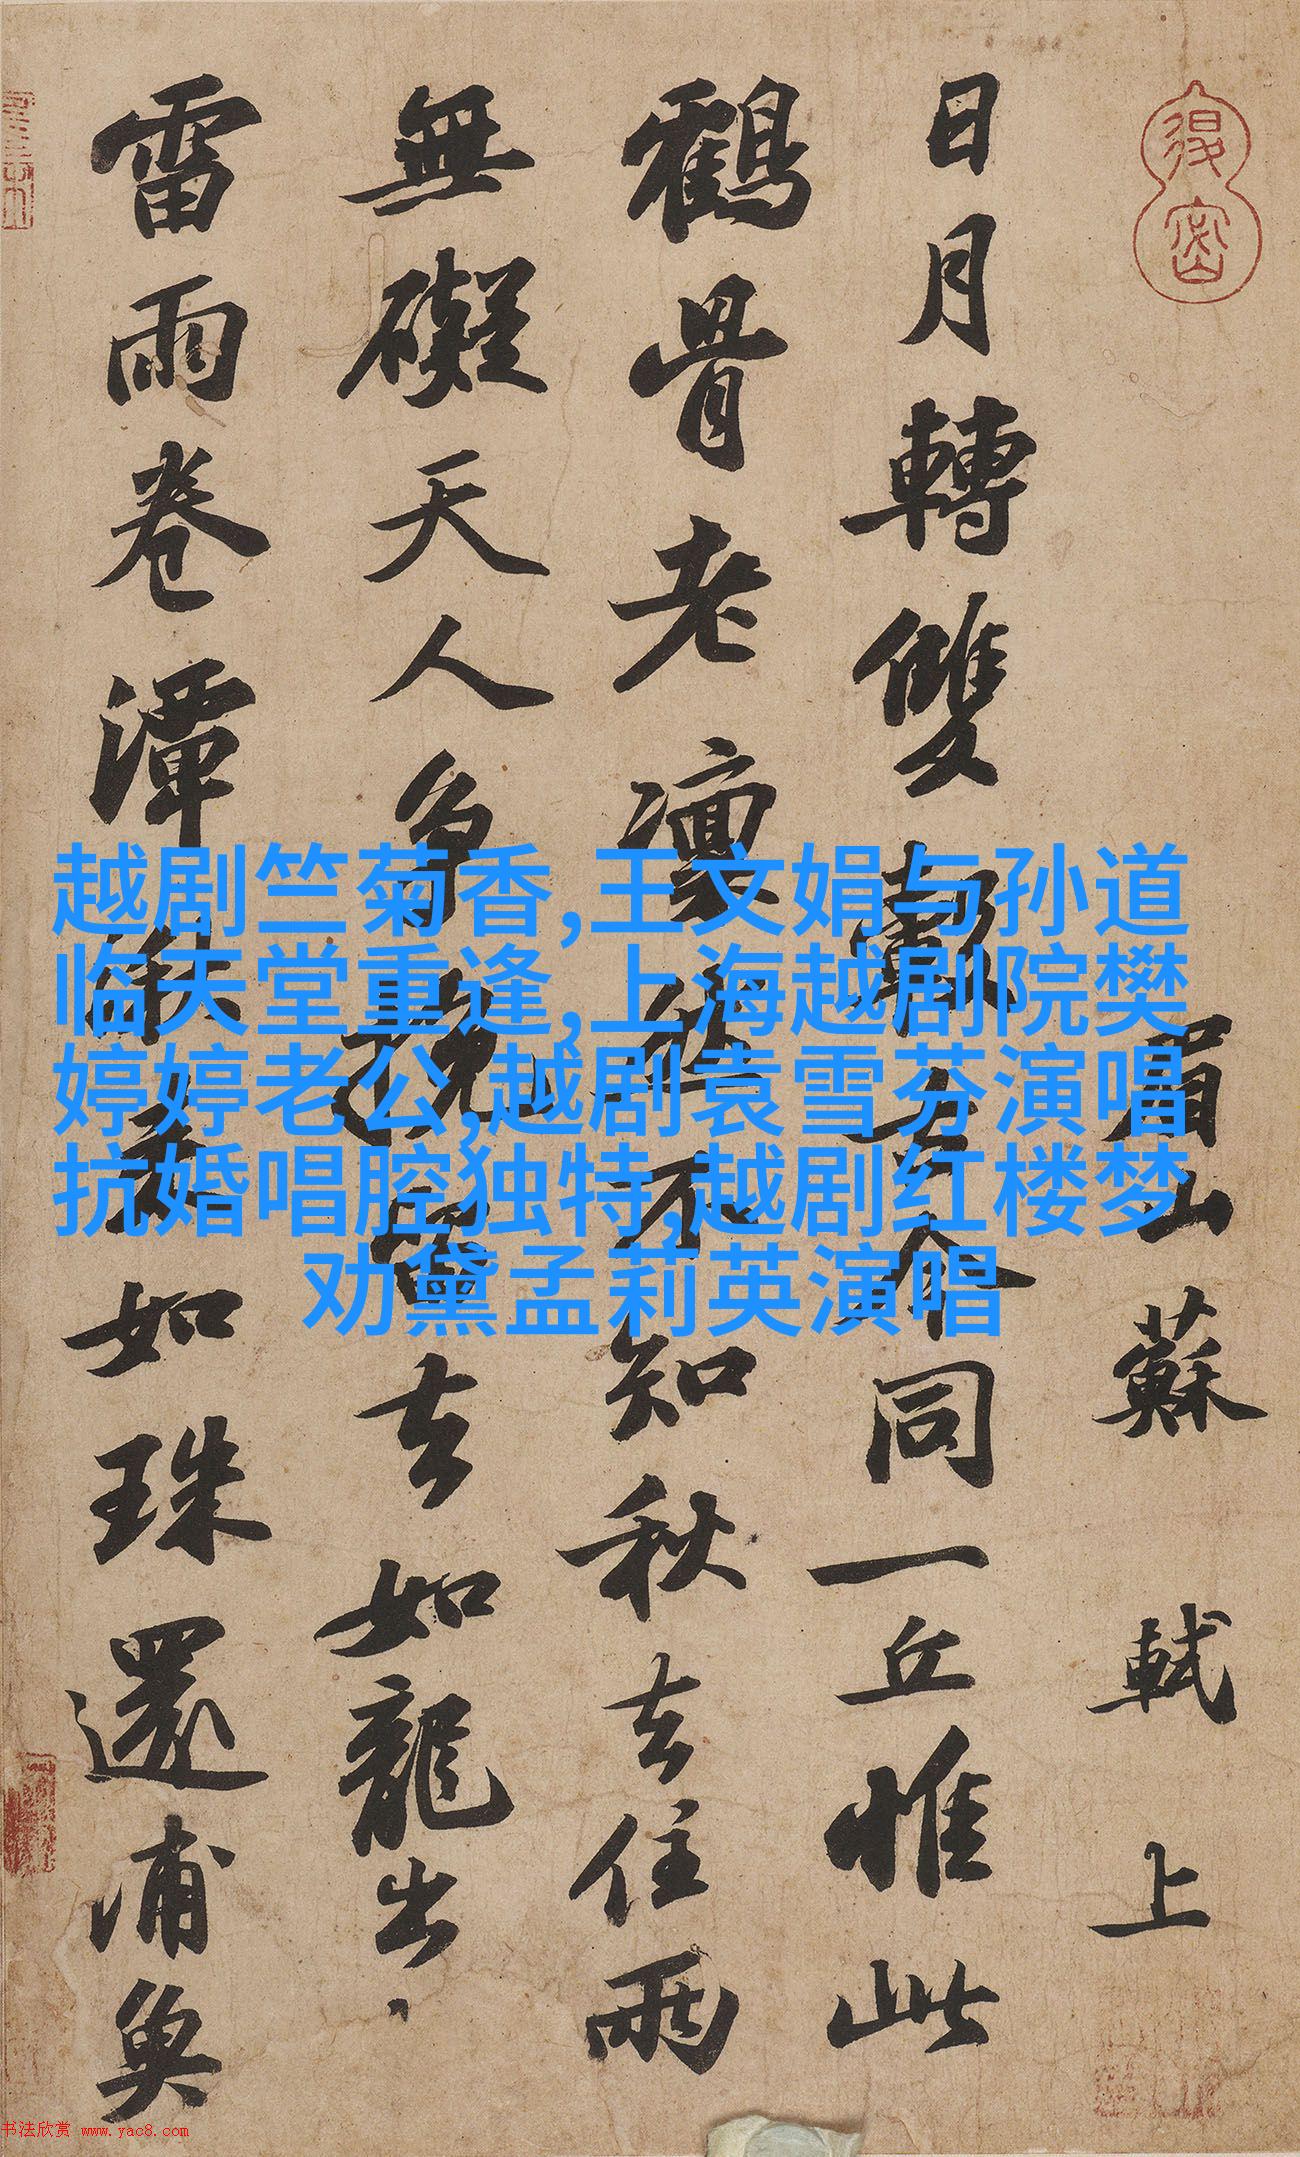 眉山蘇軾上
日月轉雙轂古今同一丘惟此
鶴骨老凜然不知秋去住兩
無礙天人争挽留去如龍出
雷雨卷潭湫来如珠還浦魚
越剧竺菊香,王文娟与孙道
临天堂重逢,上海越剧院樊
婷婷老公,越剧袁雪芬演唱
抗婚唱腔独特,越剧红楼梦
劝黛孟莉英演唱
书法欣赏 www.yac8.com